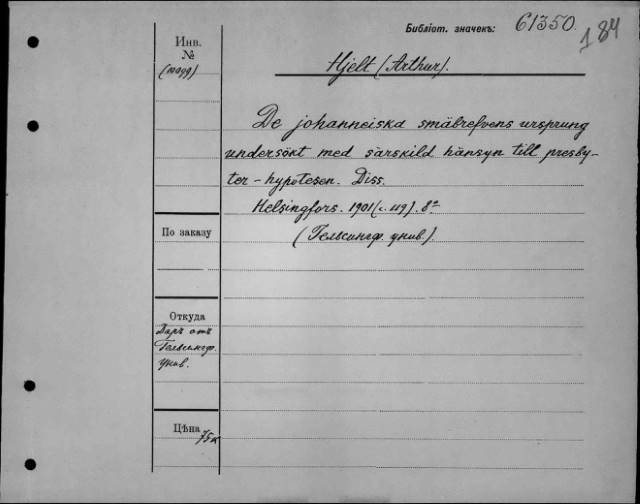 Библіот. значекъ: 61350.
184
Инв.
№
Hjelt (Arthur).
De johanneiska småbrefvens ursprung
undersökt med särskild hänsyn till presby-
ter-hypotesen. Diss.
Helsingfors. 1901 (с. 49). 8º
(Гельсингф. унив.).
По заказу
Откуда
Даръ отъ
Гельсингф.
унив.
Цѣна
75к